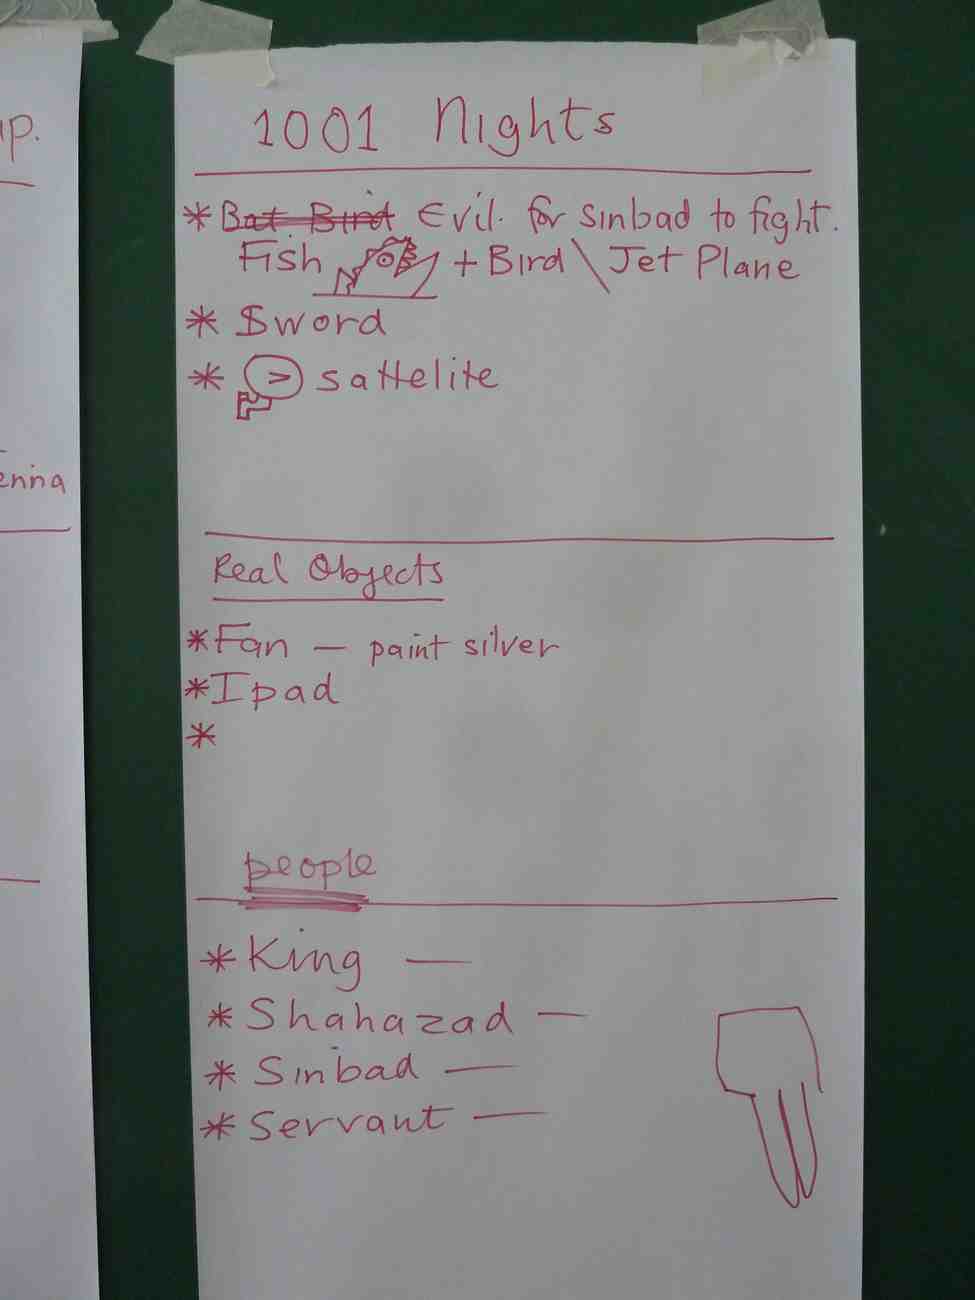 1001 Nights
* Bat Bird Evil. for sinbad to fight.
Fish + Bird \ Jet Plane
* Sword
* > sattelite
Real Objects
* Fan — paint silver
* Ipad
*
people
* King —
* Shahazad —
* Sinbad —
* Servant —
ip.
enna